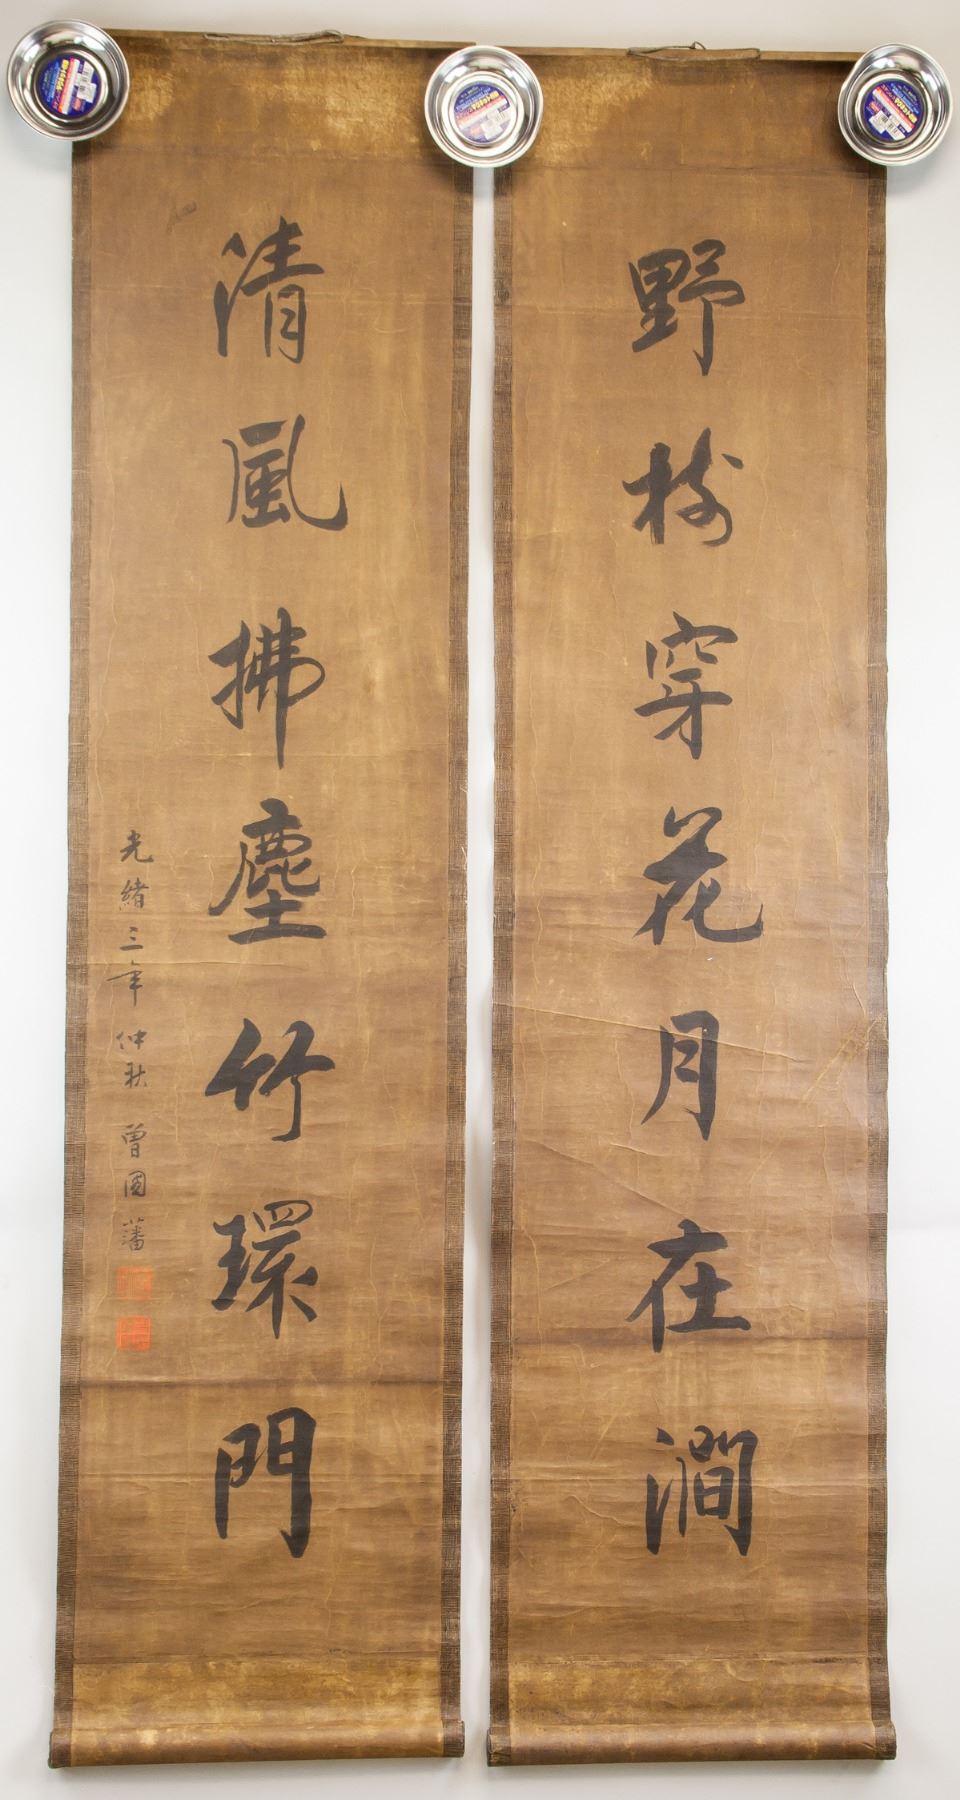 野樹穿花月在澗
清風拂塵竹環門
光緒三年仲秋 曾國藩